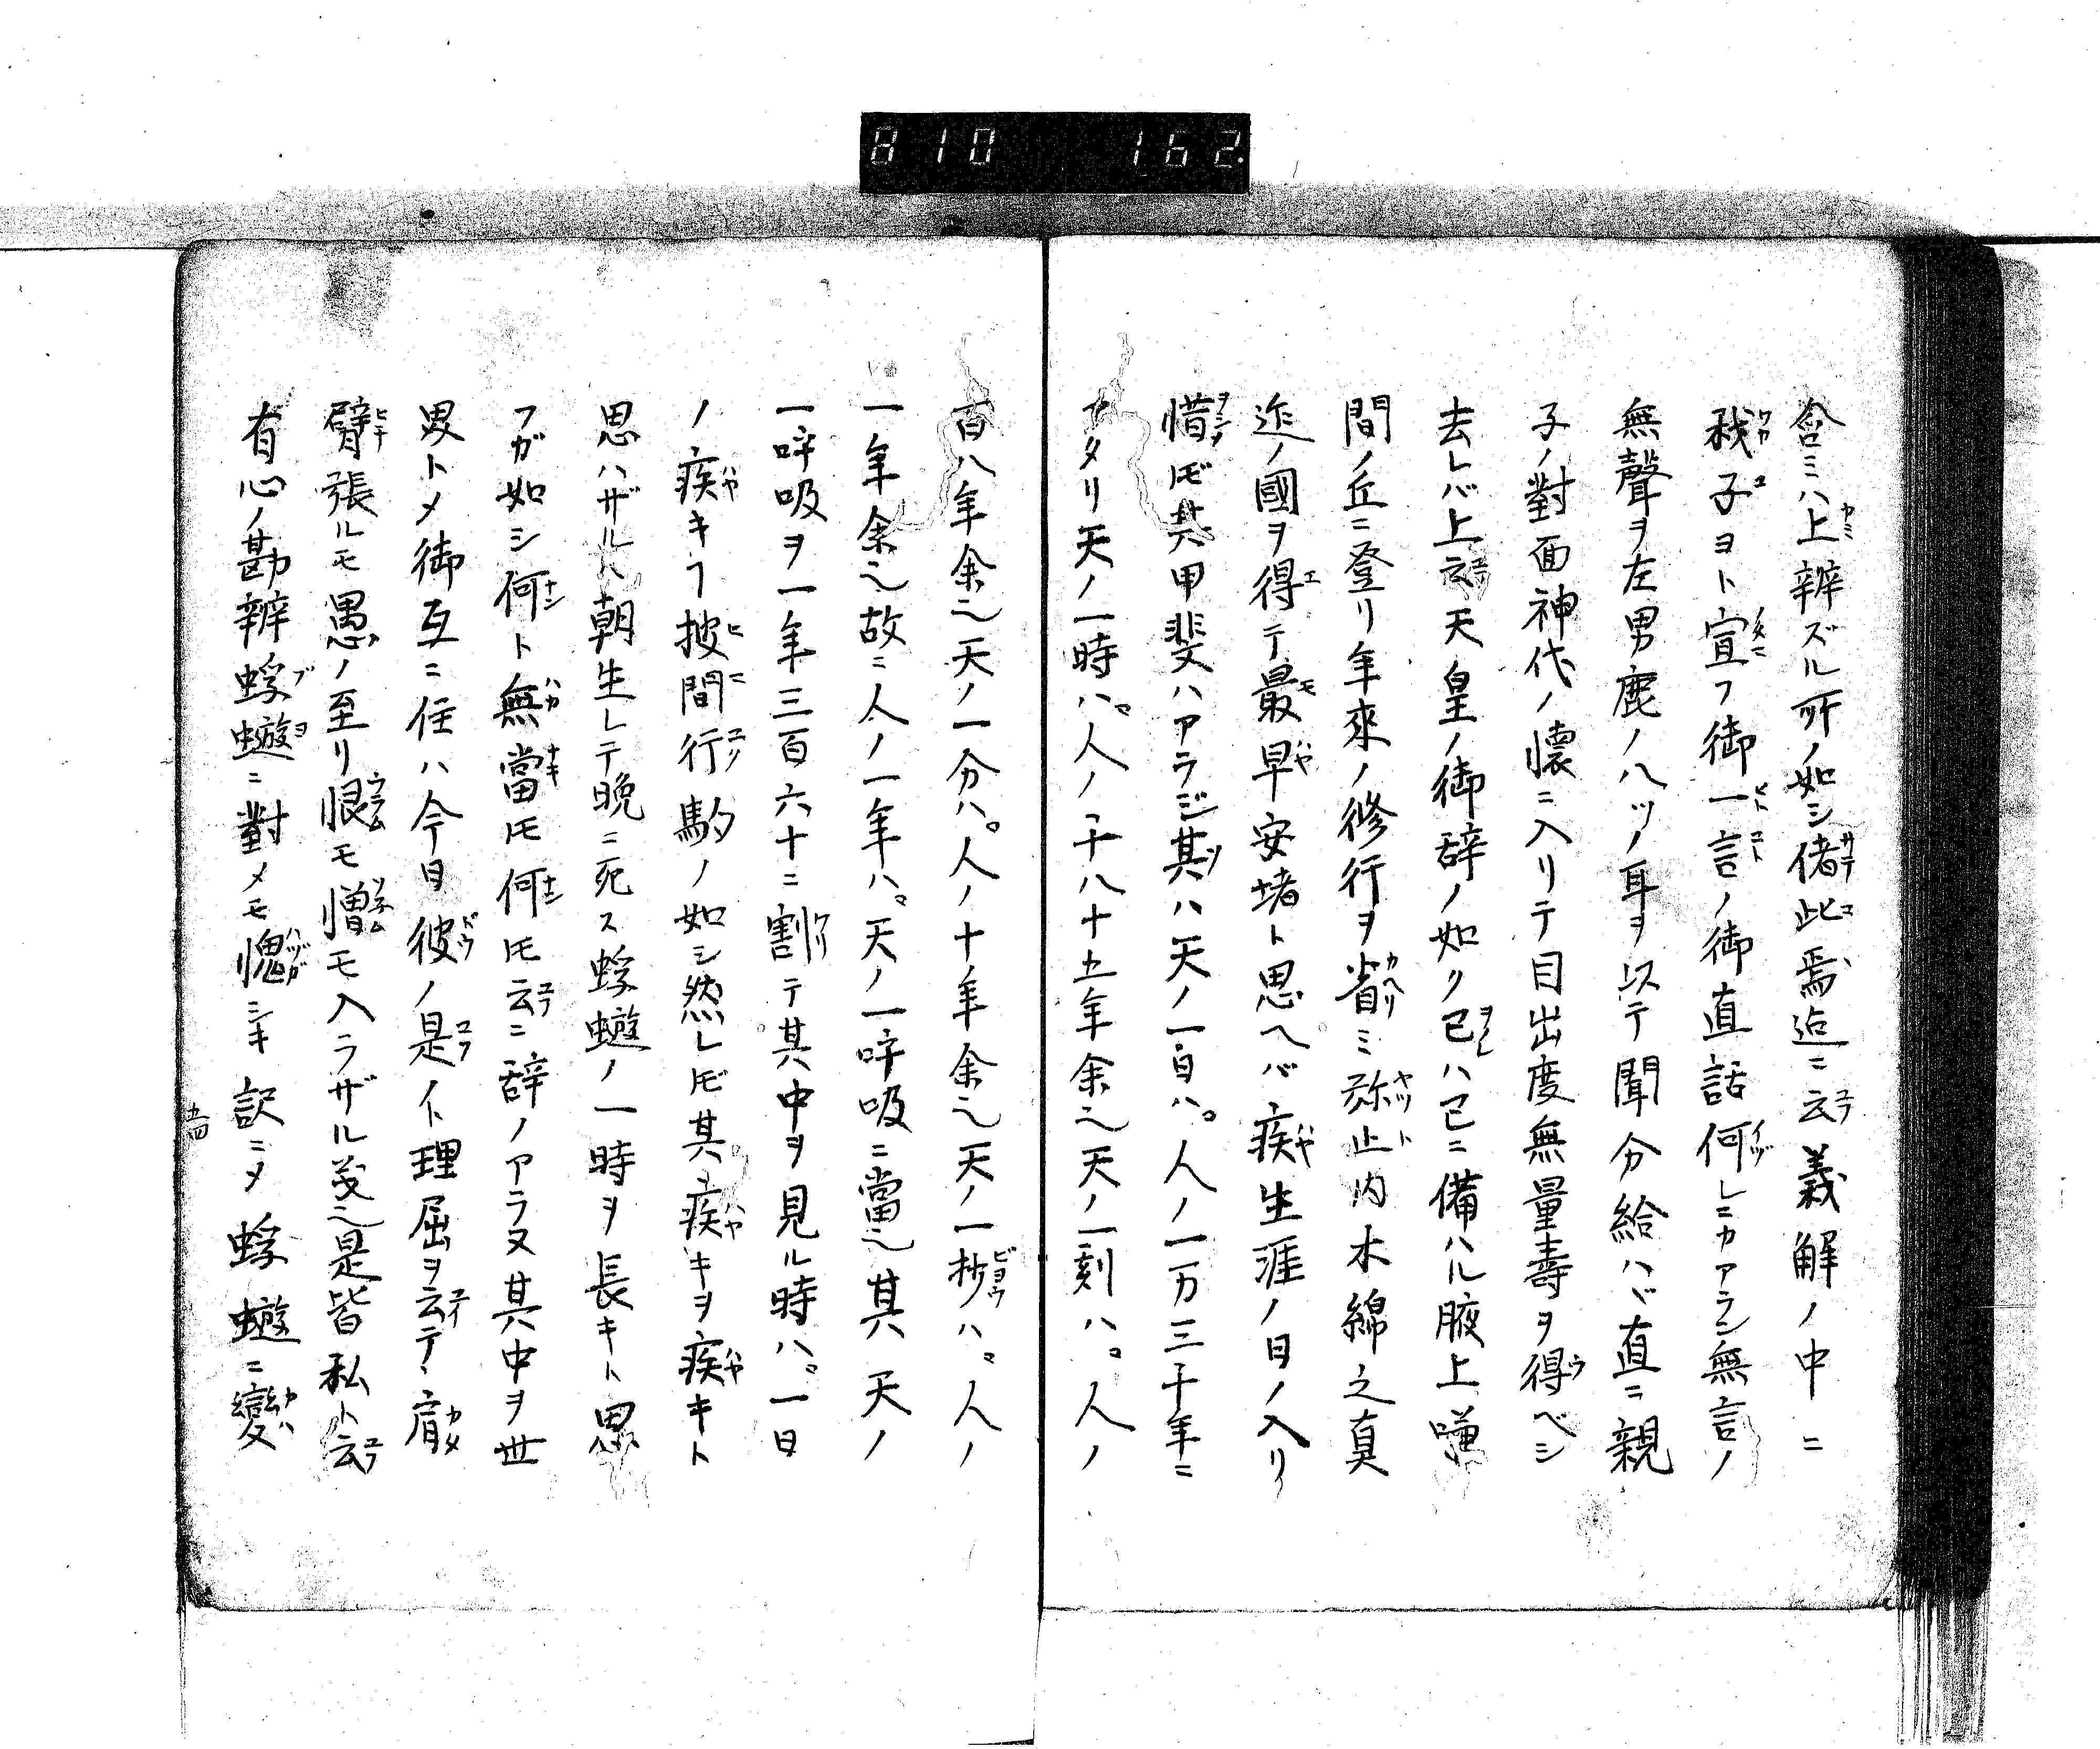 810 162
含ミハ上辨ズル所ノ如シ偖此焉迠ニ云義解ノ中ニ
我子ヨト宣フ御一言ノ御直話何レニカアラン無言ノ
無聲ヲ左男鹿ノ八ツノ耳ヲ以テ聞分給ハヾ直ニ親
子ノ對面神代ノ懐ニ入リテ目出度無量壽ヲ得ベシ
去レバ上云天皇ノ御辞ノ如ク己ハ己ニ備ハル腋上嗛
間ノ丘ニ登リ年來ノ修行ヲ省ミ弥止内木綿之真
迮ノ國ヲ得テ最早安堵ト思ヘバ疾生涯ノ日ノ入リ
惜ㇺ𪜈其甲斐ハアラジ其ハ天ノ一日ハ。人ノ一万三千年ニ
アタリ天ノ一時ハ。人ノ千八十五年余也天ノ一刻ハ。人ノ
百八年余也天ノ一分ハ。人ノ十年余也天ノ一抄ハ。人ノ
一年余也故ニ人ノ一年ハ。天ノ一呼吸ニ當也其天ノ
一呼吸ヲ一年三百六十ニ割テ其中ヲ見ル時ハ。一日
ノ疾キヿ披間行駒ノ如シ然レ𪜈其疾キヲ疾キト
思ハザルハ朝生レテ晩ニ死ス蜉蝣ノ一時ヲ長キト思
フガ如シ何ト無當𪜈何𪜈云ニ辞ノアラヌ其中ヲ世
界トメ御互ニ住ハ今日彼ノ是ノト理屈ヲ云テ肩
臂張ルモ愚ノ至リ恨モ憎モ入ラザル㕝也是皆私ト云
有心ノ勘辨蜉蝣ニ對メモ愧シキ訳ニメ蜉蝣ニ變
五四